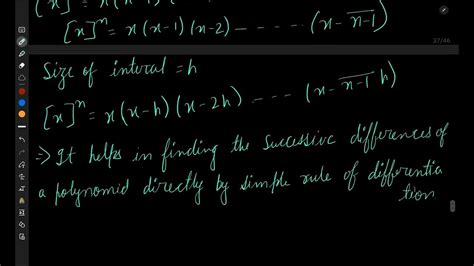 [x]ⁿ = x(x-1)(x-2) ---- (x-n̅-̅1̅)
37/46
Size of interval = h
[x]ⁿ = x(x-h)(x-2h) ---- (x-n̅-̅1̅ h)
⇒ It helps in finding the successive differences of
a polynomial directly by simple rule of differentia
tion